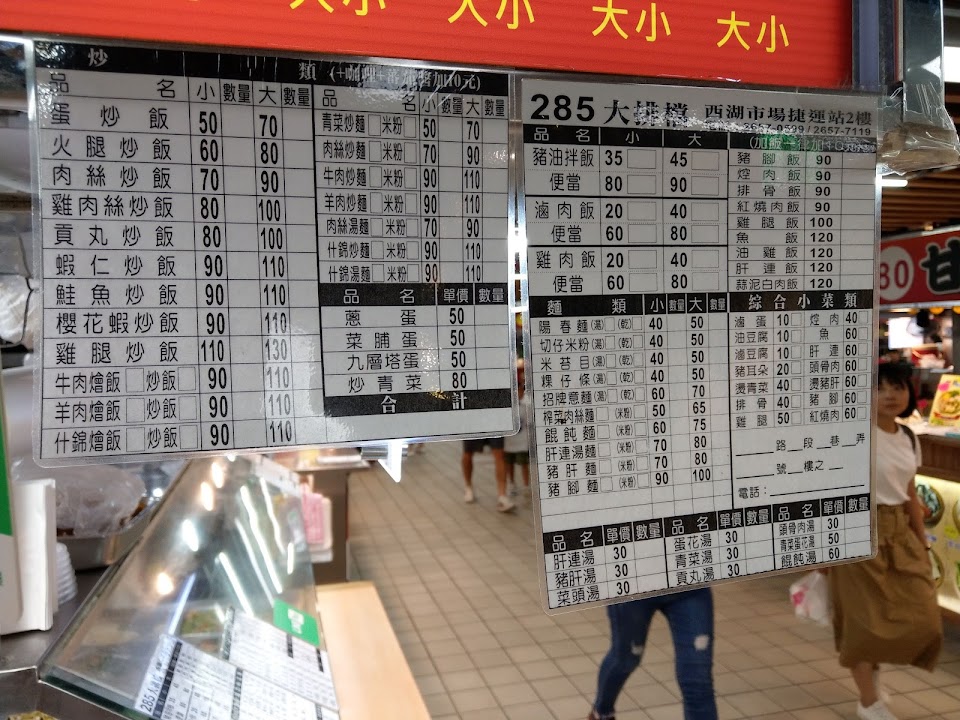 大小 大小 大小 大小
炒 類 (+咖哩+蕃茄醬加10元)
品名 小 數量 大 數量
蛋炒飯 50 70
火腿炒飯 60 80
肉絲炒飯 70 90
雞肉絲炒飯 80 100
貢丸炒飯 80 100
蝦仁炒飯 90 110
鮭魚炒飯 90 110
櫻花蝦炒飯 90 110
雞腿炒飯 110 130
牛肉燴飯 炒飯 90 110
羊肉燴飯 炒飯 90 110
什錦燴飯 炒飯 90 110
品名 小 數量 大 數量
青菜炒麵 米粉 50 70
肉絲炒麵 米粉 70 90
牛肉炒麵 米粉 90 110
羊肉炒麵 米粉 90 110
肉絲湯麵 米粉 70 90
什錦炒麵 米粉 90 110
什錦湯麵 米粉 90 110
品名 單價 數量
蔥蛋 50
菜脯蛋 50
九層塔蛋 50
炒青菜 80
合計
285 大排檔 西湖市場捷運站2樓
/ 2657-7119
品名 小 大
豬油拌飯 35 45
便當 80 90
滷肉飯 20 40
便當 60 80
雞肉飯 20 40
便當 60 80
豬腳飯 90
焢肉飯 90
排骨飯 90
紅燒肉飯 90
雞腿飯 100
魚飯 120
油雞飯 120
肝連飯 120
蒜泥白肉飯 120
麵類 小 數量 大 數量
陽春麵 (湯) (乾) 40 50
切仔米粉 (湯) (乾) 40 50
米苔目 (湯) (乾) 40 50
粿仔條 (湯) (乾) 40 50
招牌意麵 (湯) (乾) 50 70
榨菜肉絲麵 (米粉) 50 65
餛飩麵 (米粉) 60 75
肝連湯麵 (米粉) 70 80
豬肝麵 (米粉) 70 80
豬腳麵 (米粉) 90 100
綜合小菜類
滷蛋 10 焢肉 40
油豆腐 10 魚 60
滷豆腐 10 肝連 60
豬耳朵 20 頭骨肉 60
燙青菜 40 燙豬肝 60
排骨 40 豬腳 60
雞腿 50 紅燒肉 60
路 段 巷 弄
號 樓之
電話:
品名 單價 數量 品名 單價 數量 品名 單價 數量
肝連湯 30 蛋花湯 30 頭骨肉湯 30
豬肝湯 30 青菜湯 30 青菜蛋花湯 50
菜頭湯 30 貢丸湯 30 餛飩湯 60
80 甘
285